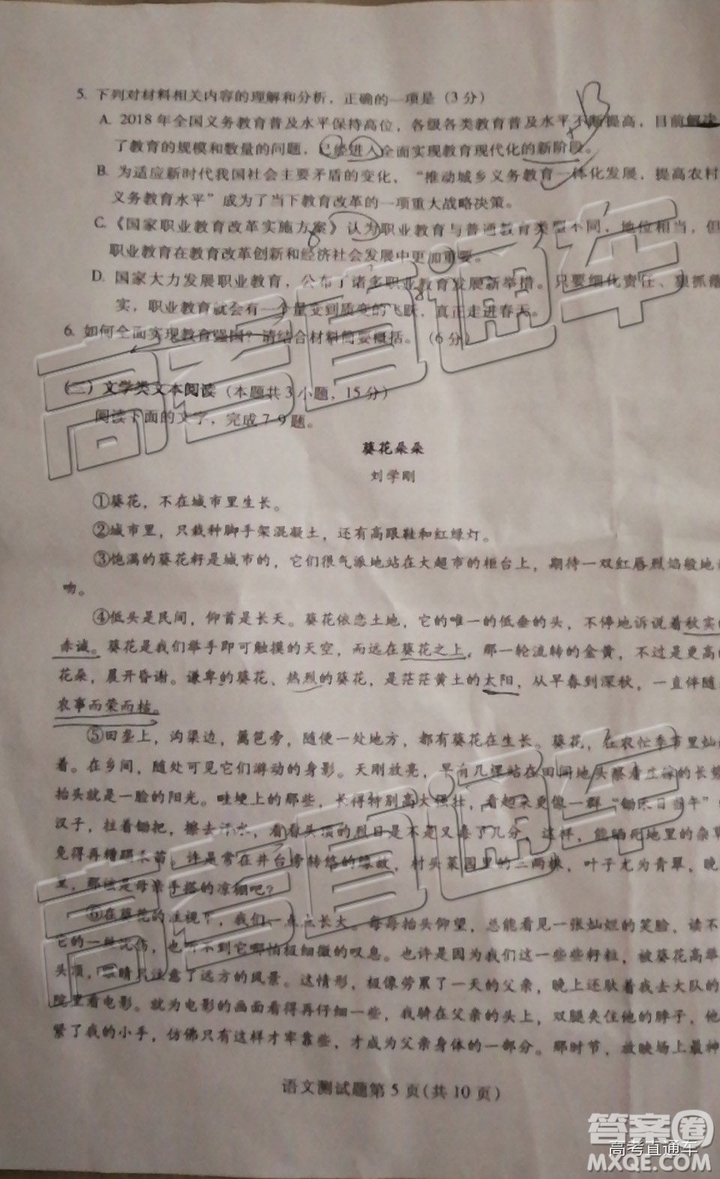 5. 下列对材料相关内容的理解和分析，正确的一项是（3分）
A. 2018年全国义务教育普及水平保持高位，各级各类教育普及水平不断提高，目前解决
了教育的规模和数量的问题，已经进入全面实现教育现代化的新阶段。
B. 为适应新时代我国社会主要矛盾的变化，“推动城乡义务教育一体化发展，提高农村
义务教育水平”成为了当下教育改革的一项重大战略决策。
C.《国家职业教育改革实施方案》认为职业教育与普通教育类型不同，地位相当，但
职业教育在教育改革创新和经济社会发展中更加重要。
D. 国家大力发展职业教育，公布了诸多职业教育发展新举措。只要细化责任、狠抓落
实，职业教育就会有一个量变到质变的飞跃，真正走进春天。
6. 如何全面实现教育强国？请结合材料简要概括。（6分）
（二）文学类文本阅读（本题共3小题，15分）
阅读下面的文字，完成7-9题。
葵花朵朵
刘学刚
①葵花，不在城市里生长。
②城市里，只栽种脚手架混凝土，还有高跟鞋和红绿灯。
③饱满的葵花籽是城市的，它们很气派地站在大超市的柜台上，期待一双红唇烈焰般地
吻。
④低头是民间，仰首是长天。葵花依恋土地，它的一维的低垂的头，不停地诉说着秋实的
赤诚。葵花是我们举手即可触摸的天空，而远在葵花之上，那一轮流转的金黄，不过是更高的
花朵，晨开昏谢。谦卑的葵花、热烈的葵花，是茫茫黄土的太阳，从早春到深秋，一直伴随
农事而荣而枯。
⑤田垄上，沟渠边，篱笆旁，随便一处地方，都有葵花在生长。葵花，在农忙季节里灿
着。在乡间，随处可见它们游动的身影。天刚放亮，早有几课站在田间地头擦着生锈的
抬头就是一脸的阳光。哇埂上的那些，长得特别高大强壮，看起来更像一群“锄禾日当午”
汉子，拄着锄把，擦去汗水，看看头顶的烈日是不是又高了几分。这样，能晒死地里的杂草
免得再糟蹋禾苗。许是常在井台旁转悠的缘故，村头菜园里的二两株，叶子尤为青翠，
里，那该是母亲手搭的凉棚吧？
⑥在葵花的注视下，我们一点点长大。每每抬头仰望，总能看见一张灿烂的笑脸，读不
它的一些沉伤，也听不到哪怕极细微的叹息。也许是因为我们这一些些籽粒，被葵花高举
头顶，眼睛只注意了远方的风景。这情形，极像劳累了一天的父亲，晚上还驮着我去大队的
院里看电影。就为电影的画面看得再仔细一些，我骑在父亲的头上，双腿夹住他的脖子，他
紧了我的小手，仿佛只有这样才牢靠些，才成为父亲身体的一部分。那时节，放映最多的
语文测试题第5页(共10页)
高考直通车
高考直通车
答案圈
高考直通车
MXQE.COM